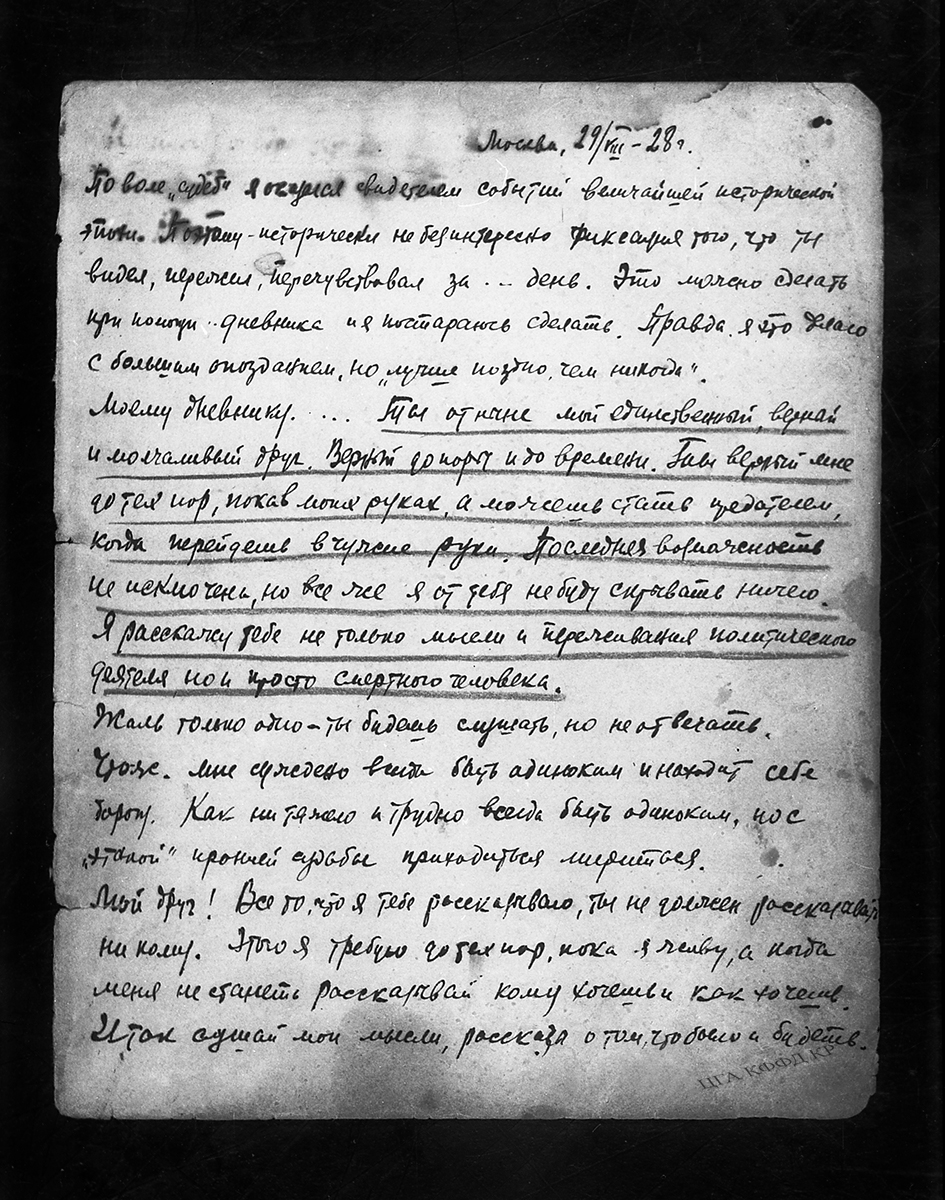 Москва, 29/VIII – 28 г.
По воле „судеб" я оказался свидетелем событий величайшей исторической
эпохи. Поэтому – исторически не безинтересно фиксация того, что ты
видел, пережил, перечувствовал за ... день. Это можно сделать
при помощи .. дневника и я постараюсь сделать. Правда я это делаю
с большим опозданием, но „лучше поздно, чем никогда".
Моему дневнику. ... Ты отныне мой единственный, верный
и молчаливый друг. Верный до поры и до времени. Ты верный мне
до тех пор, пока в моих руках, а можешь стать предателем,
когда перейдешь в чужие руки. Последняя возможность
не исключена, но все же я от тебя не буду скрывать ничего.
Я расскажу тебе не только мысли и переживания политического
деятеля, но и просто смертного человека.
Жаль только одно – ты будешь слушать, но не отвечать.
Что ж. мне суждено всегда быть одиноким и находит себе
дорогу. Как ни тяжело и трудно всегда быть одиноким, но с
„этакой" иронией судьбы приходиться мириться.
Мой друг! Все то, что я тебе рассказываю, ты не должен рассказывать
никому. Этого я требую до тех пор, пока я живу, а когда
меня не станеть рассказывай кому хочешь и как хочешь.
Итак слушай мои мысли, рассказа о том, что было и будеть.
ЦГА КФФД КР